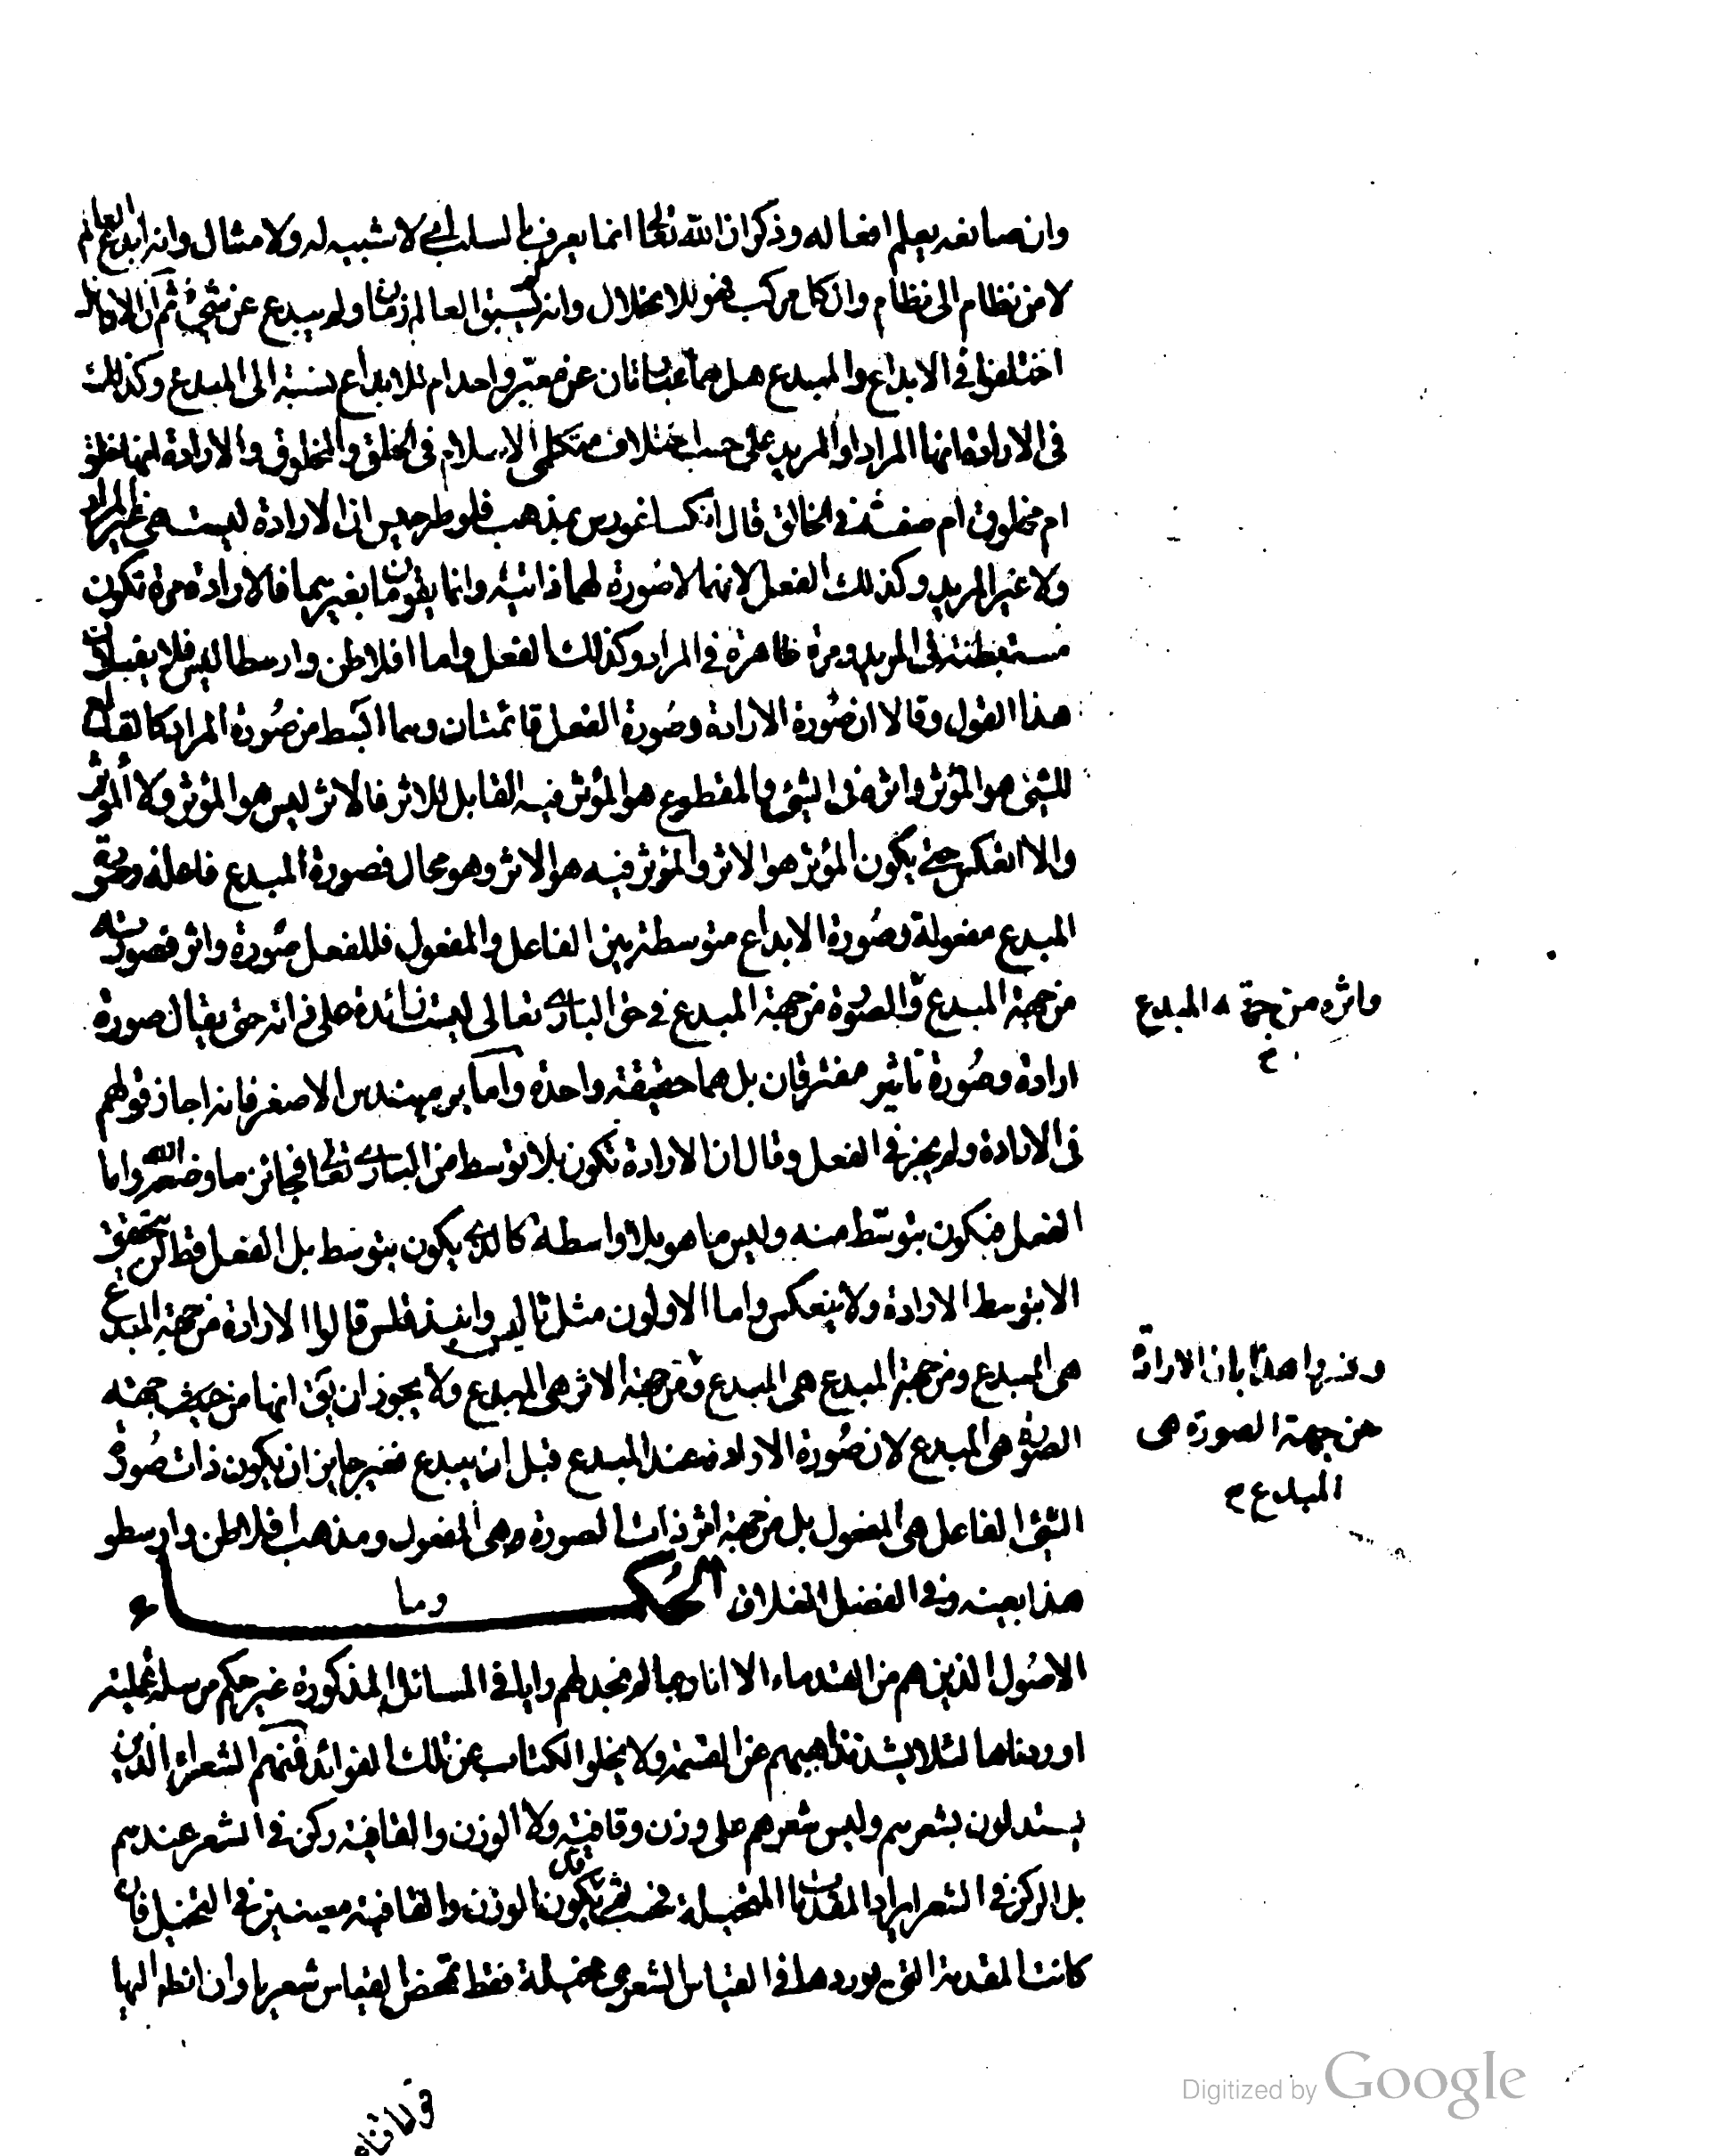 وان صانعه يعلم افعاله وذكر ان الله تعالى انما يعرف بالسلب اى لا شبيه له ولا مثال وانه ابدع العالم
لا من نظام الى نظام وان كل مركب فهو للانحلال وانه لم يسبق العالم زمان ولم يبدع عن شئ ثم ان الاوائل
اختلفوا فى الابداع والمبدع هل هما عبارتان عن معبر واحد ام للابداع نسبة الى المبدع وكذلك
فى الارادة انها المراد او المريد على حسب اختلاف متكلمى الاسلام فى الخلق والمخلوق والارادة انها خلق
ام مخلوق ام صفة فى الخالق قال انكساغورس بمذهب فلوطرخيس ان الارادة ليست هى غير المراد
ولا غير المريد وكذلك الفعل لانهما لا صورة لهما ذاتية وانما يقومان بغيرهما فالارادة مرة تكون
مستبطنة فى المريد ومرة ظاهرة فى المراد وكذلك الفعل واما افلاطن وارسطاليس فلا يقبلان
هذا القول وقالا ان صورة الارادة وصورة الفعل قائمتان وهما ابسط من صورة المراد كالقاطع
للشئ هو المؤثر واثره فى الشئ والمقطوع هو المؤثر فيه القابل للاثر فالاثر ليس هو المؤثر ولا المؤثر
والا انعكس حتى يكون المؤثر هو الاثر والمؤثر فيه هو الاثر وهو محال فصورة المبدع فاعلة وصورة
المبدع مفعولة وصورة الابداع متوسطة بين الفاعل والمفعول فللفعل صورة واثر فصورته
من جهة المبدع والصورة من جهة المبدع فى حق البارى تعالى ليست زائدة على ذاته حتى يقال صورة
واثره من جهة المبدع
ارادة وصورة تاثير مفترقان بل هما حقيقة واحدة واما برميندس الاصغر فانه اجاز قولهم
فى الارادة ولم يجز فى الفعل وقال ان الارادة تكون بلا توسط من البارى تعالى فجائز ما وضعه واما
الفعل فيكون بتوسط منه وليس ما هو بلا واسطة كالذى يكون بتوسط بل الفعل قط لن يتحقق
الا بتوسط الارادة ولا ينعكس واما الاولون مثل ثاليس وانبذقلس قالوا الارادة من جهة المبدع
هى المبدع ومن جهة المبدع هى المبدع ومن جهة الاثر هى المبدع ولا يجوز ان يق انها من حيث جهة
وفسروا هذا بان الارادة
من جهة الصورة هى
المبدع
الصورة هى المبدع لان صورة الارادة عند المبدع قبل ان يبدع فغير جايز ان يكون ذات صورة
الشئ الفاعل هى المفعول بل من جهة اثر ذات الصورة هى المفعول ومذهب افلاطن وارسطو
هذا بعينه وفى الفصل انغلاق الحكماء وما
الاصول الذين هم من القدماء الا انا ربما لم نجد لهم رايا فى المسائل المذكورة غير حكم مرسلة عملية
اوردناها لئلا يشذ مذاهبهم عن القسمة ولا يخلو الكتاب عن تلك الفوائد فمنهم الشعراء الذين
يستدلون بشعرهم وليس شعرهم على وزن وقافية ولا الوزن والقافية ركن فى الشعر عندهم
بل الركن فى الشعر ايراد المقدمات المخيلة فحسب ثم قد يكون الوزن والقافية معينين فى التخيل فان
كانت المقدمة التى يوردها فى القياس الشعرى مخيلة فقط تمحض القياس شعريا وان انظم اليها